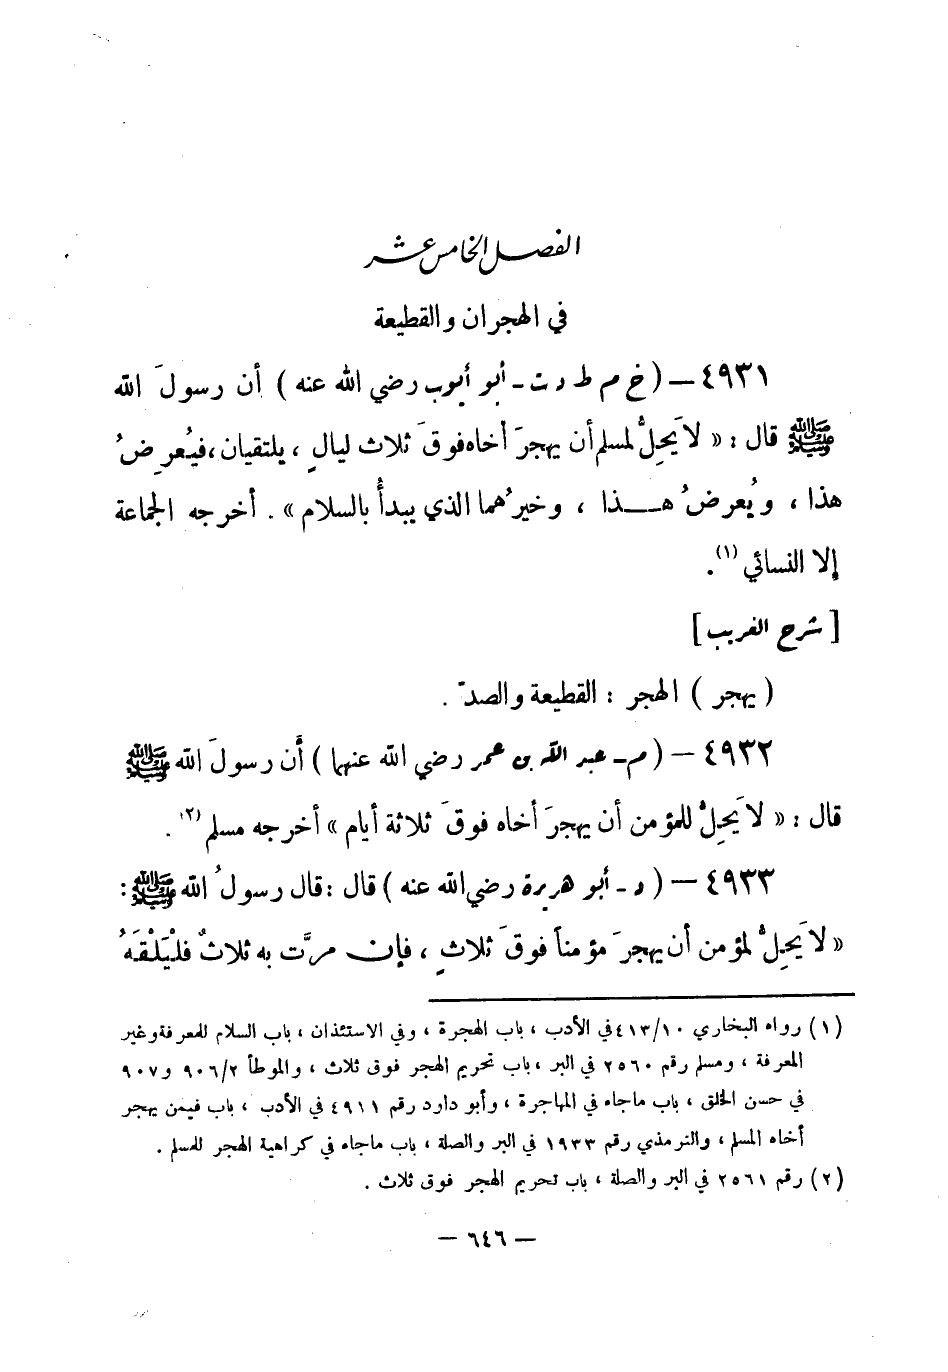 الفصل الخامس عشر
في الهجران والقطيعة
٤٩٣١ – ( خ م ط د ت - أبو أيوب رضي الله عنه ) أن رسولَ الله
ﷺ قال : « لاَ يَحِلُّ لمسلم أن يهجرَ أخاه فوقَ ثلاث ليالٍ ، يلتقيان ، فيُعرِضُ
هذا ، ويُعرضُ هـــذا ، وخيرُهما الذي يبدأُ بالسلام » . أخرجه الجماعة
إلا النسائي (١) .
[ شرح الغريب ]
( يهجر ) الهجر : القطيعة والصدّ .
٤٩٣٢ – ( م - عبد الله بن عمر رضي الله عنهما ) أن رسولَ الله ﷺ
قال : « لاَ يَحِلُّ للمؤمن أن يهجرَ أخاه فوقَ ثلاثة أيام » أخرجه مسلم (٢) .
٤٩٣٣ – ( د - أبو هريرة رضي الله عنه ) قال : قال رسولُ الله ﷺ :
« لاَ يَحِلُّ لمؤمن أن يهجرَ مؤمناً فوقَ ثلاثٍ ، فإن مرَّت به ثلاثٌ فلْيَلْقَهُ
(١) رواه البخاري ٤١٣/١٠ في الأدب ، باب الهجرة ، وفي الاستئذان ، باب السلام للمعرفة وغير
المعرفة ، ومسلم رقم ٢٥٦٠ في البر ، باب تحريم الهجر فوق ثلاث ، والموطأ ٩٠٦/٢ و ٩٠٧
في حسن الخلق ، باب ماجاء في المهاجرة ، وأبو داود رقم ٤٩١١ في الأدب ، باب فيمن يهجر
أخاه المسلم ، والترمذي رقم ١٩٣٣ في البر والصلة ، باب ماجاء في كراهية الهجر للمسلم .
(٢) رقم ٢٥٦١ في البر والصلة ، باب تحريم الهجر فوق ثلاث .
– ٦٤٦ –